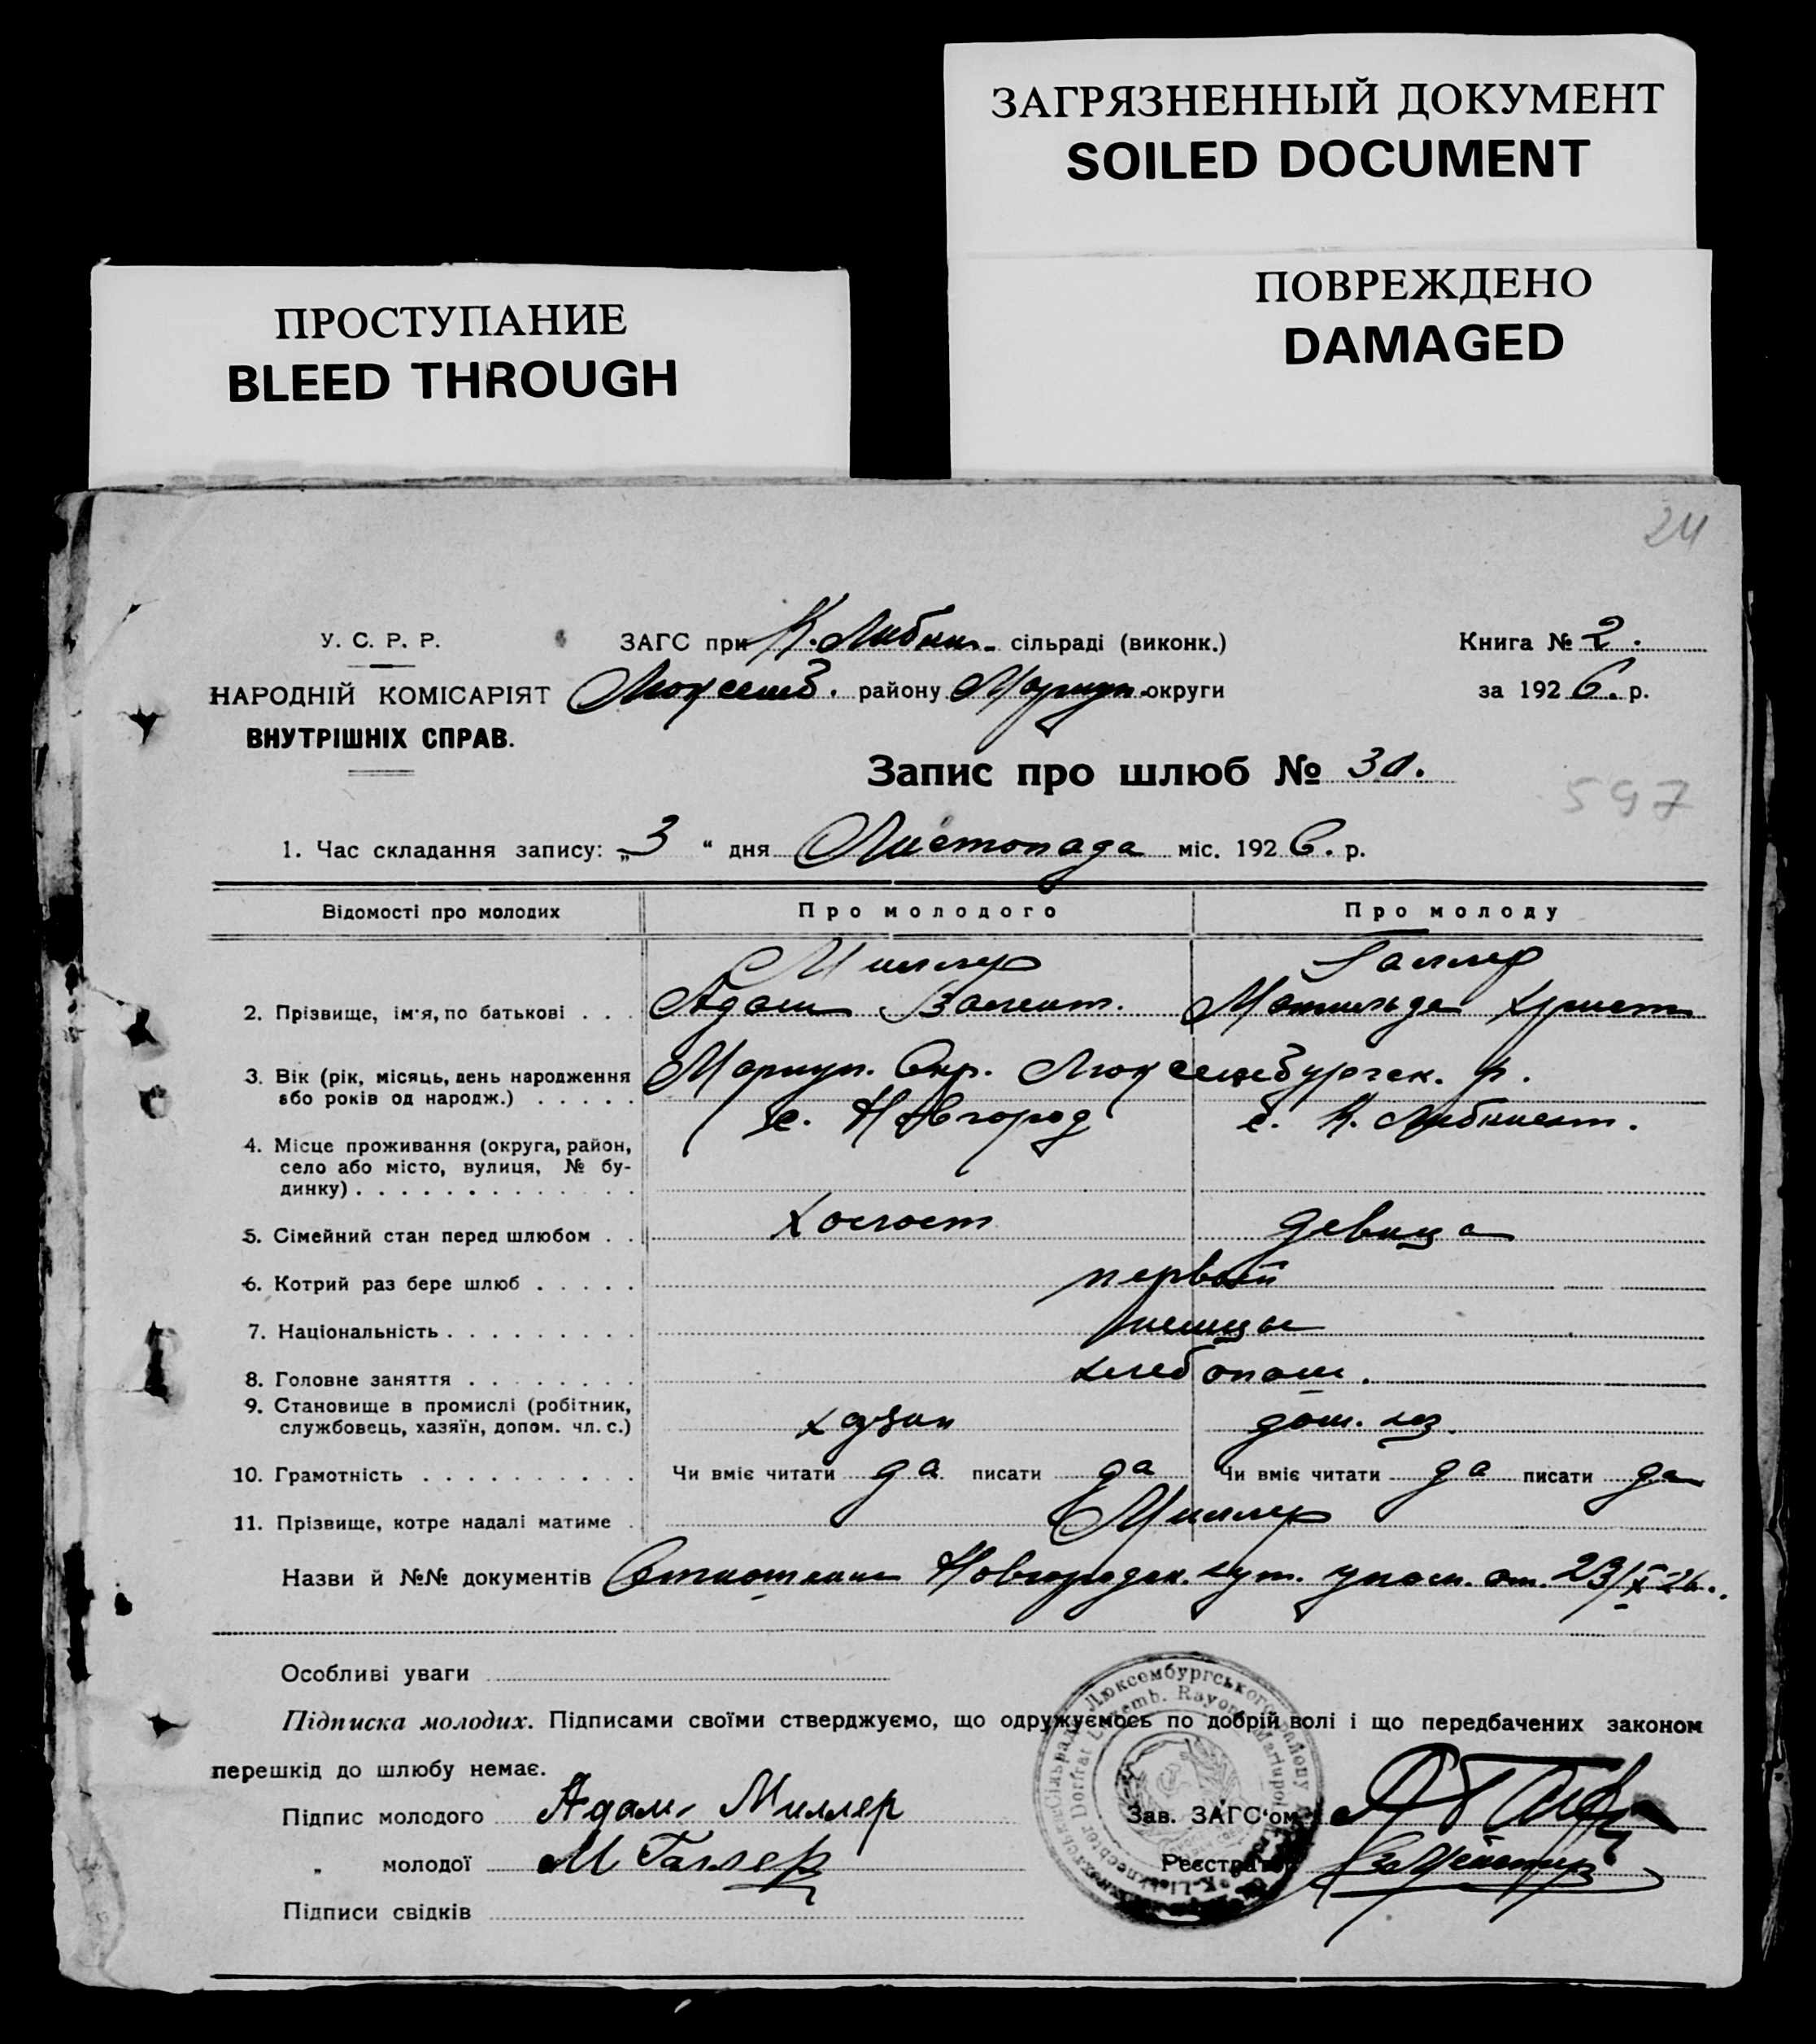 ЗАГРЯЗНЕННЫЙ ДОКУМЕНТ
SOILED DOCUMENT
ПРОСТУПАНИЕ
BLEED THROUGH
ПОВРЕЖДЕНО
DAMAGED
24
У. С. Р. Р.
НАРОДНІЙ КОМІСАРІЯТ
ВНУТРІШНІХ СПРАВ.
ЗАГС при К. Либкн. сільраді (виконк.)
Люксемб. району Мариуп. округи
Книга № 2.
за 1926. р.
Запис про шлюб № 30.
597
1. Час складання запису: „3“ дня Листопада міс. 1926. р.
Відомості про молодих Про молодого Про молоду
Миллер Галлер
2. Прізвище, ім'я, по батькові . . . Адам Валент. Матильда Христ
3. Вік (рік, місяць, день народження Мариуп. Окр. Люксембургск. р.
або років од народж.) . . . . . с. Новгород с. К. Либкнехт.
4. Місце проживання (округа, район,
село або місто, вулиця, № бу-
динку) . . . . . . . . . . . . .
5. Сімейний стан перед шлюбом . . холост девица
6. Котрий раз бере шлюб . . . . . первый
7. Національність . . . . . . . . . немцы
8. Головне заняття . . . . . . . . хлебопаш.
9. Становище в промислі (робітник,
службовець, хазяїн, допом. чл. с.) хазяин дом. хоз.
10. Грамотність . . . . . . . . . . Чи вміє читати да писати да Чи вміє читати да писати да
11. Прізвище, котре надалі матиме . Миллер
Назви й №№ документів Отношение Новгородск. хут. уполн. от. 23/X-26.
Особливі уваги
Підписка молодих. Підписами своїми стверджуємо, що одружуємось по добрій волі і що передбачених законом
перешкід до шлюбу немає.
Підпис молодого Адам Миллер
Зав. ЗАГС'ом
„ молодої М Галлер
Реєстратор
Підписи свідків
Сільрада Люксембургського району
Dorfrat Luxemb. Rayon Mariupol
K. Liebknecht